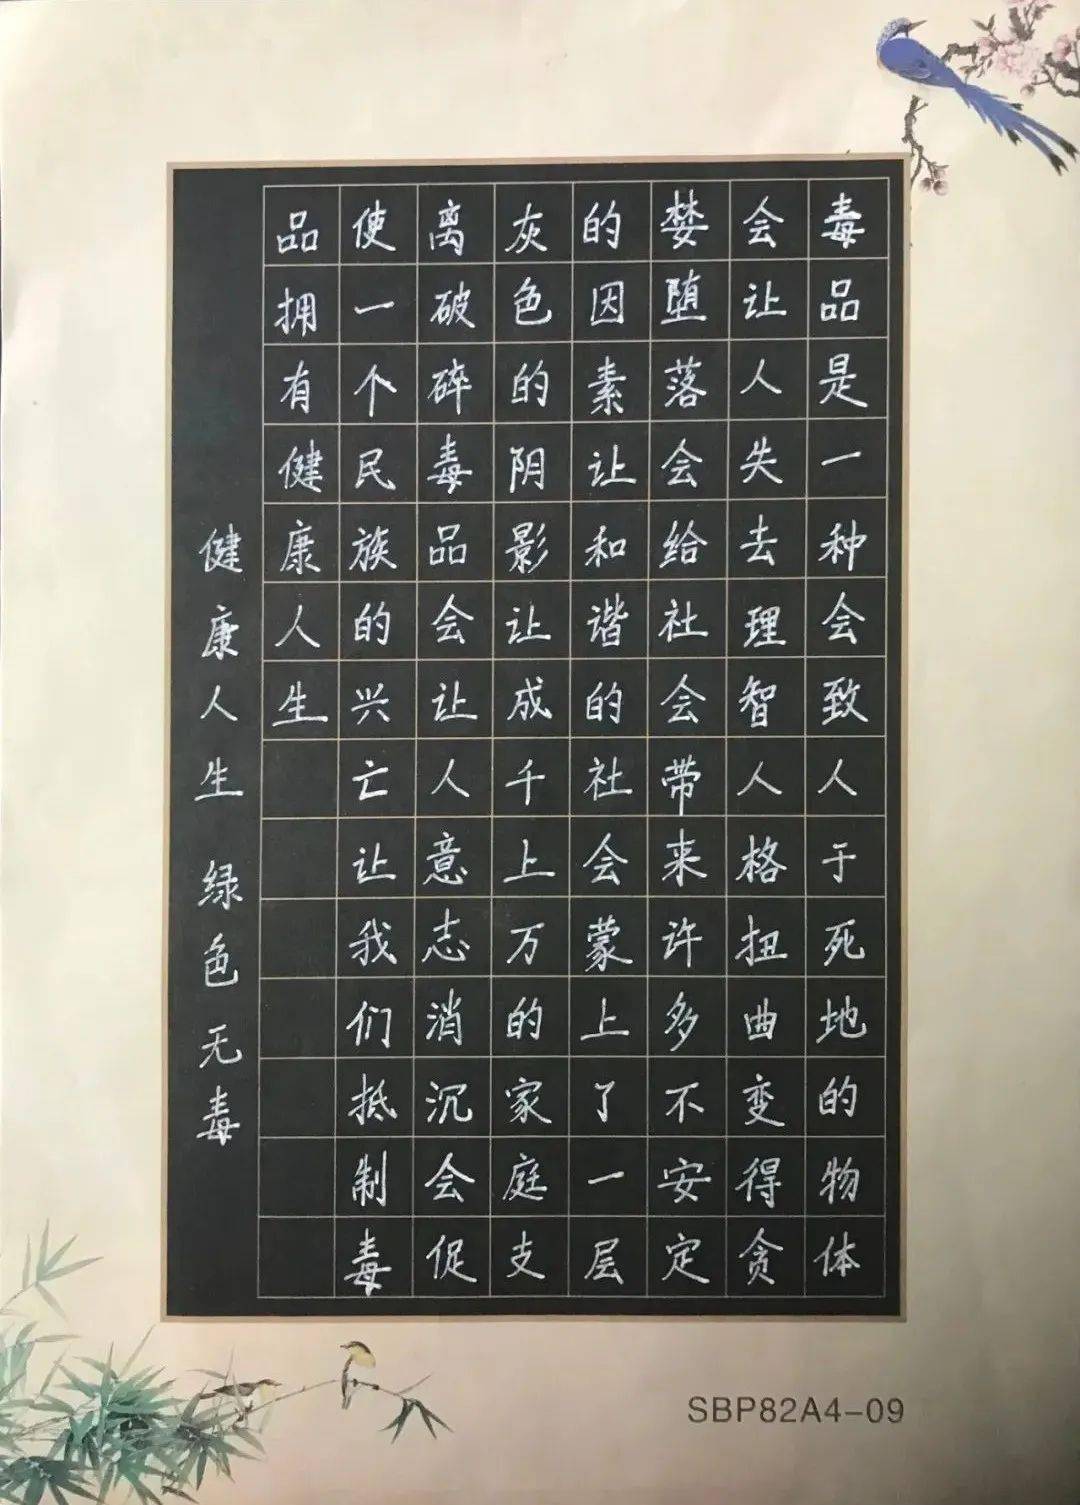 毒品是一种会致人于死地的物体
会让人失去理智人格扭曲变得贪
婪堕落会给社会带来许多不安定
的因素让和谐的社会蒙上了一层
灰色的阴影让成千上万的家庭支
离破碎毒品会让人意志消沉会促
使一个民族的兴亡让我们抵制毒
品拥有健康人生
健康人生 绿色无毒
SBP82A4-09